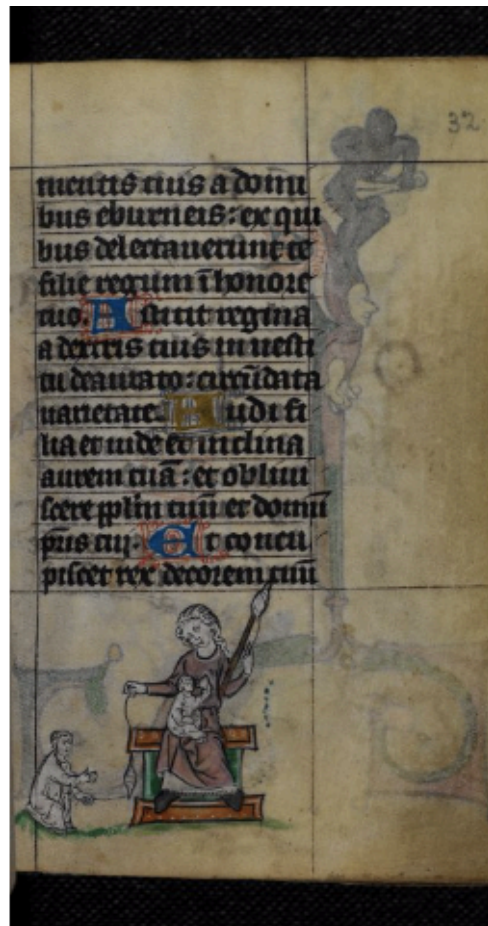 32
mentis tuis a domi
bus eburneis: ex qui
bus delectauerunt te
filie regum ī honore
tuo. Astitit regina
a dextris tuis in uesti
tu deaurato: circūdata
uarietate. Audi fi
lia et uide et inclina
aurem tuā: et obliui
scere pplm tuū et domū
pris tui. Et concu
piscet rex decorem tuū